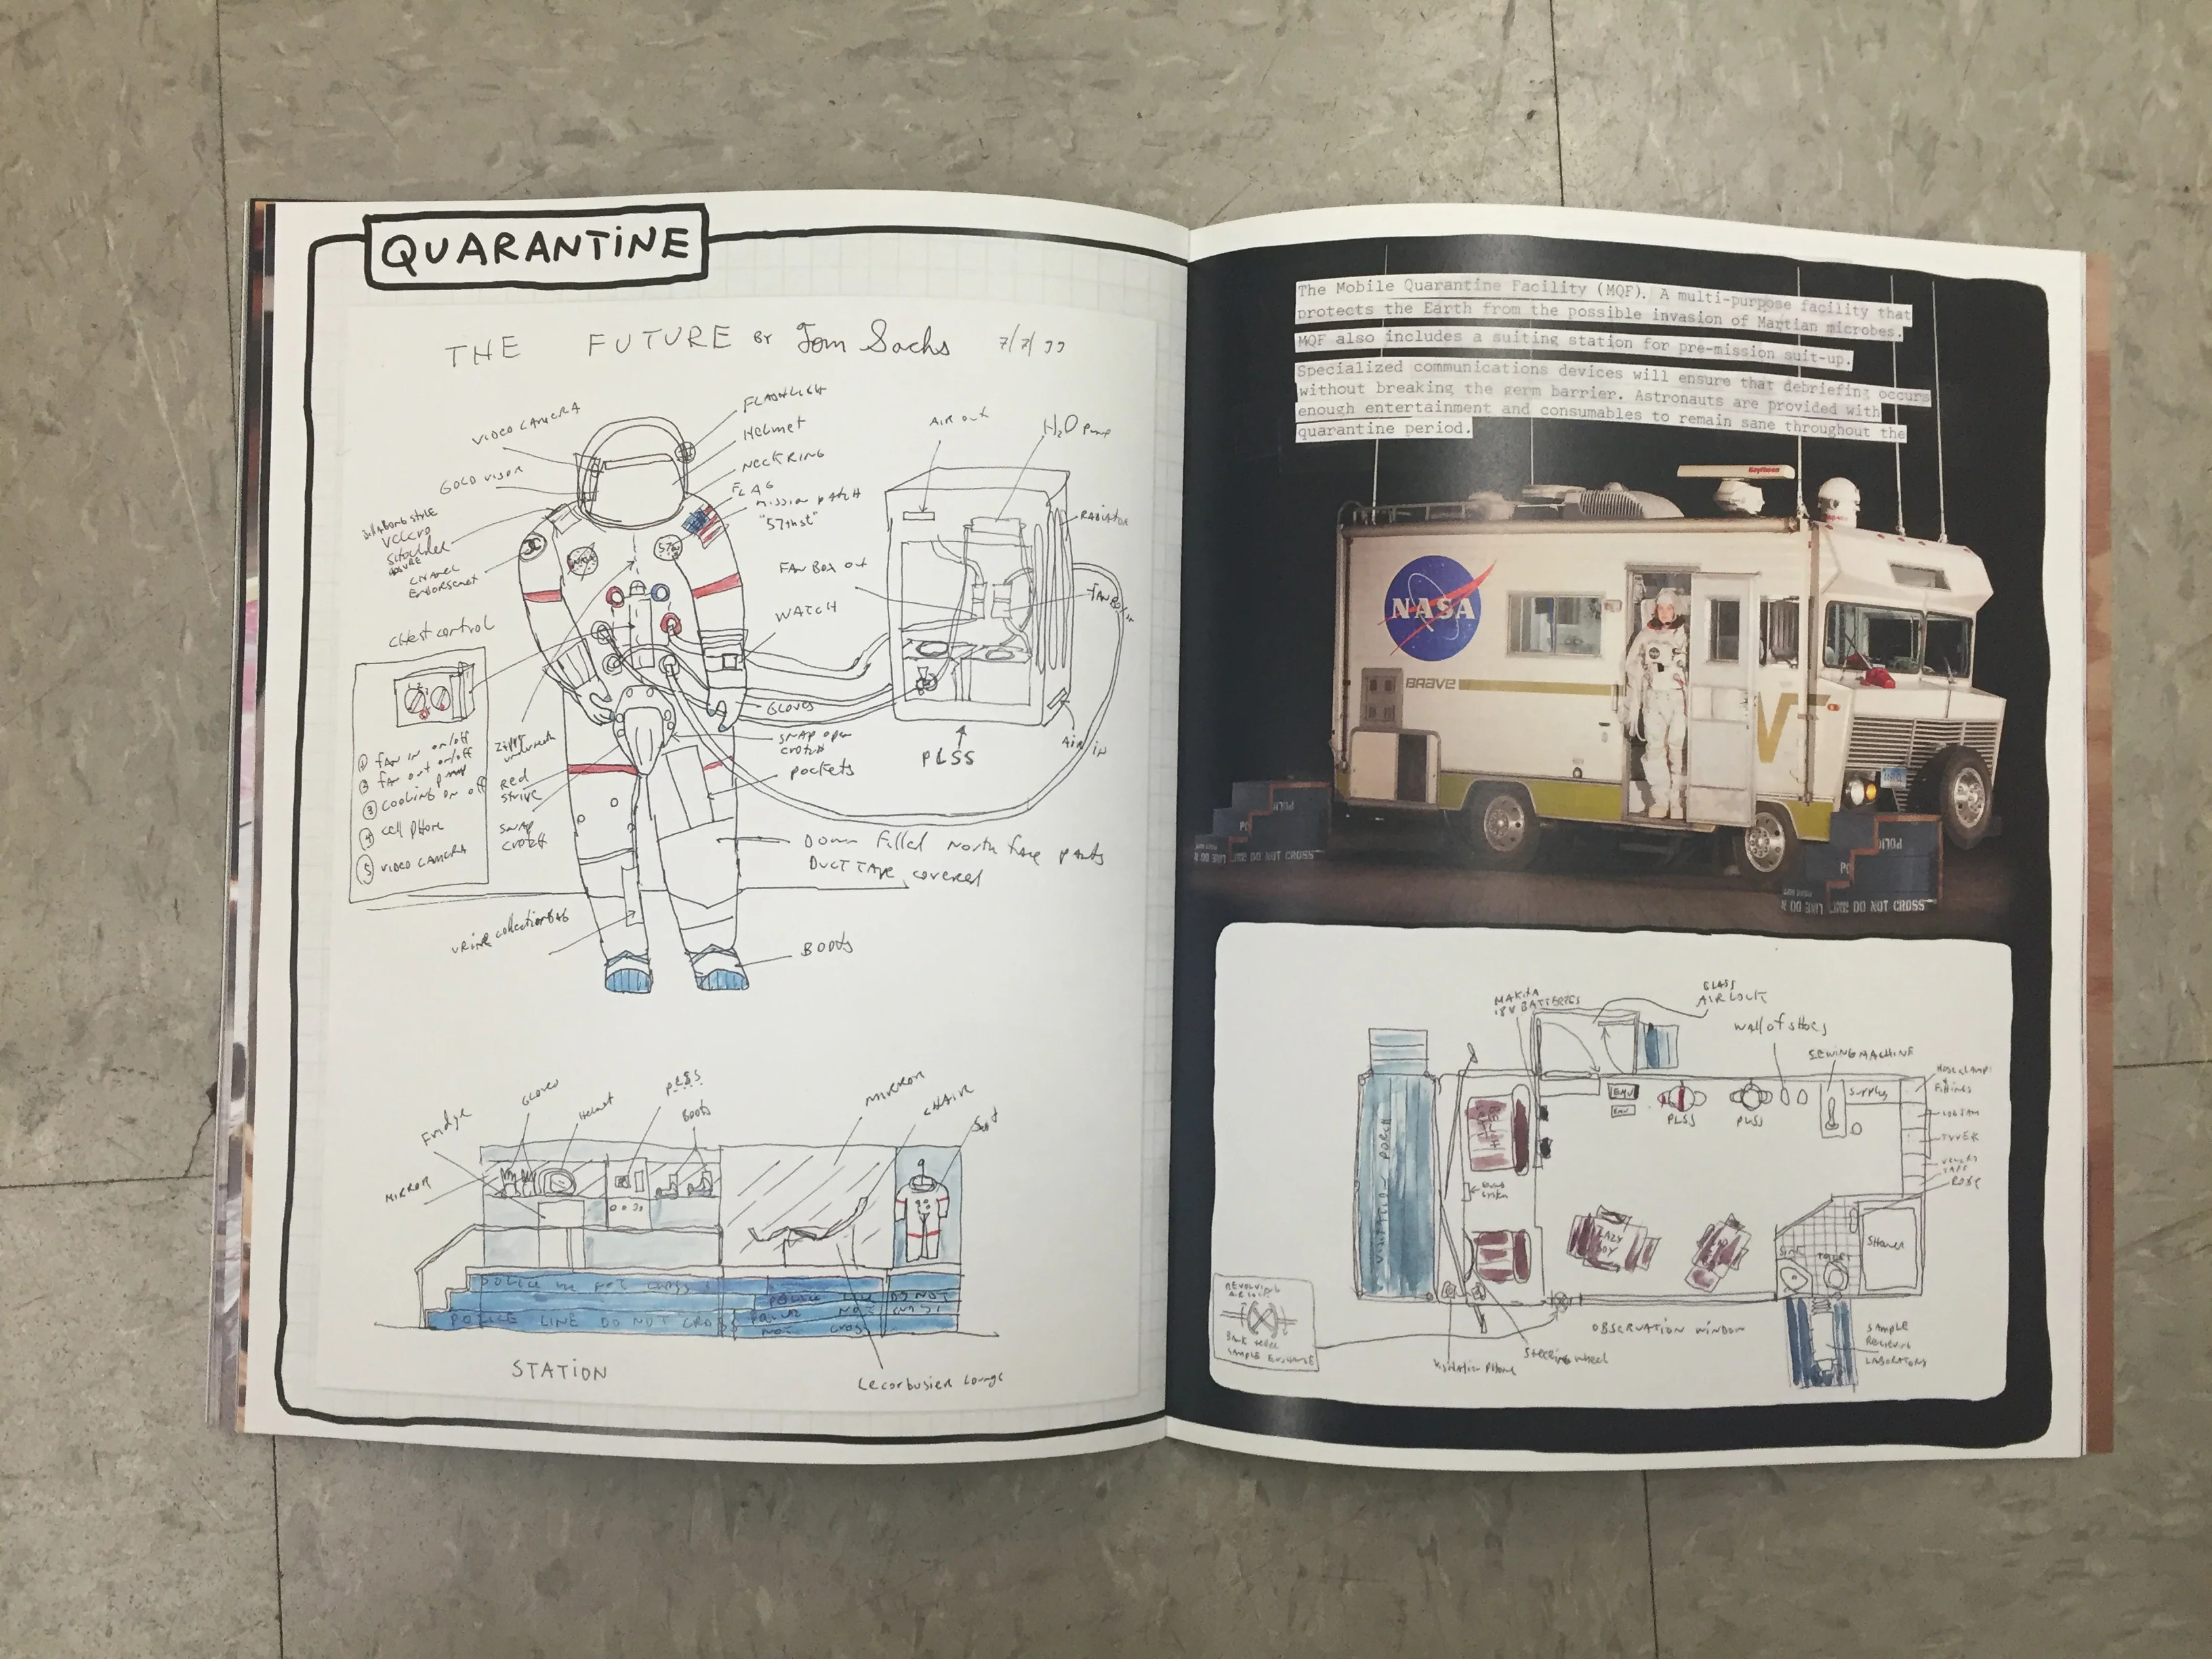 QUARANTINE
THE FUTURE BY Tom Sachs 7/7/99
VIDEO CAMERA
GOLD VISOR
VELCRO
SHOULDER
CHANEL
ENDORSEMENT
FLASHLIGHT
Helmet
NECK RING
FLAG
mission patch
"57th st"
WATCH
GLOVES
SNAP open
crotch
pockets
Down Filled North Face pants
DUCT TAPE covered
BOOTS
NASA
chest control
① fan in on/off
② fan out on/off
③ cooling pump on off
④ cell phone
⑤ VIDEO CAMERA
Zipper
underneath
Red
stripe
SNAP
crotch
urine collection bag
AIR out
H₂O pump
RADIATOR
FAN BOX out
FAN BOX in
AIR in
PLSS
Fridge
GLOVES
Helmet
PLSS
Boots
MIRROR
CHAIR
Suit
MIRROR
POLICE LINE DO NOT CROSS
POLICE LINE DO NOT CROSS
STATION
Lecorbusier Lounge
The Mobile Quarantine Facility (MQF). A multi-purpose facility that
protects the Earth from the possible invasion of Martian microbes.
MQF also includes a suiting station for pre-mission suit-up.
Specialized communications devices will ensure that debriefing occurs
without breaking the germ barrier. Astronauts are provided with
enough entertainment and consumables to remain sane throughout the
quarantine period.
Raytheon
NASA
BRAVE
W
DO NOT CROSS
LINE DO NOT CROSS
MAKITA
18V BATTERIES
GLASS
AIR LOCK
Wall of shoes
SEWING MACHINE
HOSE CLAMP
FITTINGS
Supplies
EMU
EMU
PLSS
PLSS
TYVEK
TAPE
VISITATION PORCH
LAZY
BOY
Sink
TOILET
Shower
OBSERVATION WINDOW
SAMPLE
RECIEVING
LABORATORY
REVOLVING
AIR LOCK
BANK TELLER
SAMPLE EXCHANGE
Visitation Phone
Steering wheel